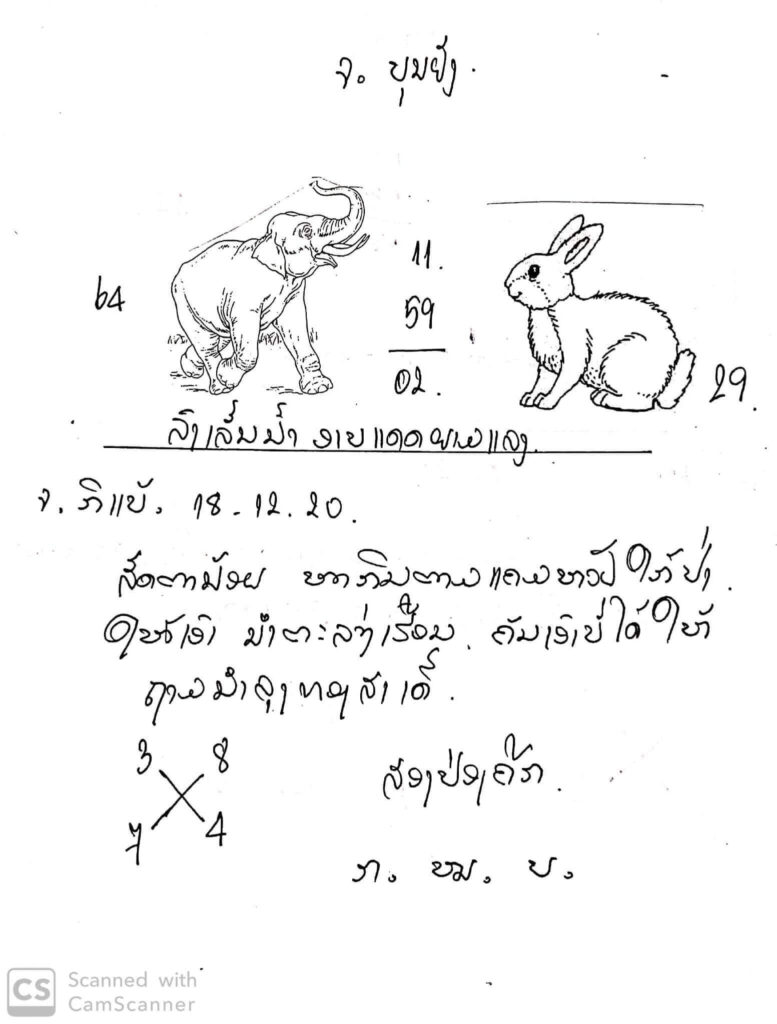 ຈ. ບຸນຢັງ.
64
11.
59
02.
29.
ລີງ ເຫຼັ້ນນ້ຳ ອາບແດດ ຍາມແລງ
ຈ. ກິແບ້. 18-12.20.
ສັດຕານ້ອຍ ຫາກິນຕາມແຄມຫ້ວຍ ໃກ້ປ່າ.
ໃຫ້ເອົາ ນຳຕະລ່າງເຮືອນ. ຄັນເອົາບໍ່ໄດ້ ໃຫ້
ຖາມນຳລຸງທອງສາເດີ້.
3 8
7 4
ສອງປ່ອງ
ກ. ຫມ. ບ.
Scanned with
CamScanner
CS